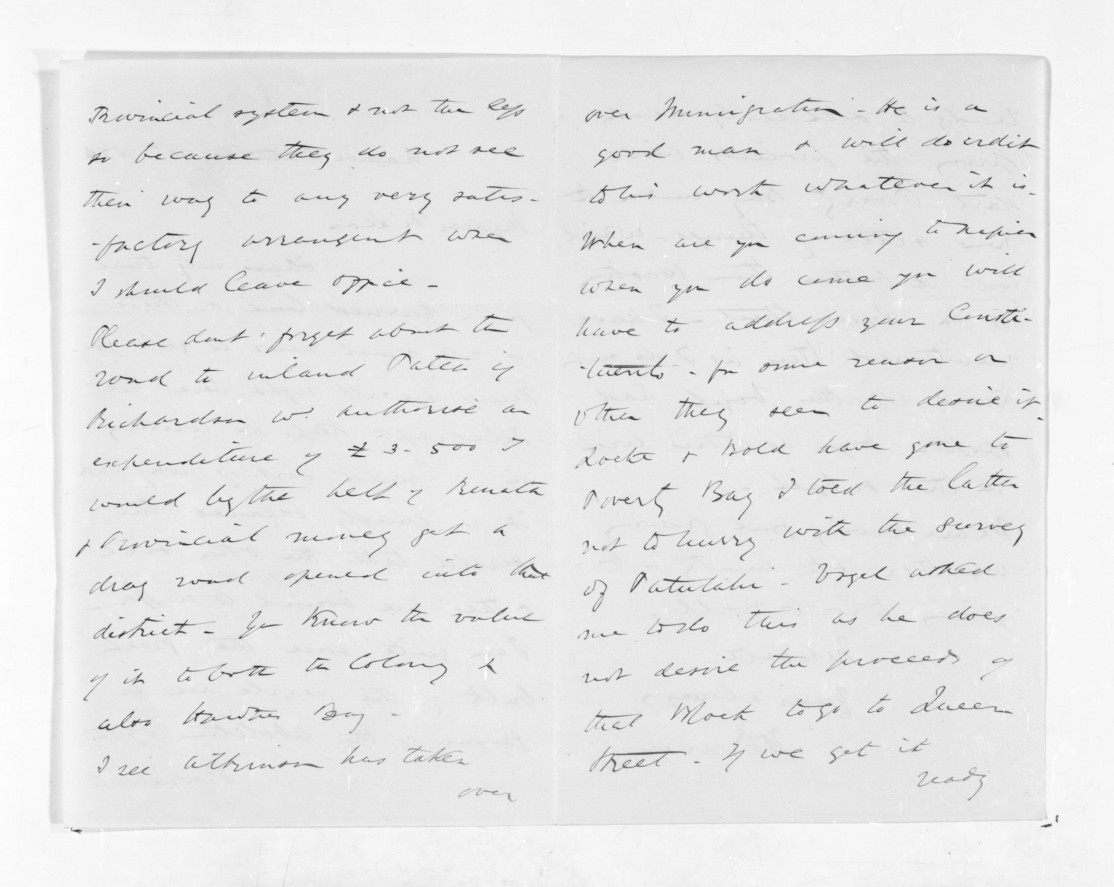 Provincial system & not the less
so because they do not see
their way to any very satis-
-factory arrangent when
I should leave office -
Please dont forget about the
road to inland Patea if
Richardson wd. authorise an
expenditure of £3.500 I
would by the help of Renata
& Provincial money get a
dray road opened into that
district - You know the value
of it to both the Colony &
also Hawkes Bay -
I see Atkinson has taken
over
over Immigration - He is a
good man & will do credit
to his work whatever it is -
When are you coming to Napier
when you do come you will
have to address your Consti-
-tuents - for some reason or
other they seem to desire it -
Locke & Bold have gone to
Poverty Bay I told the latter
not to hurry with the survey
of Patutahi - Vogel asked
me to do this as he does
not desire the proceeds of
that Block to go to Queen
Street - If we get it
ready